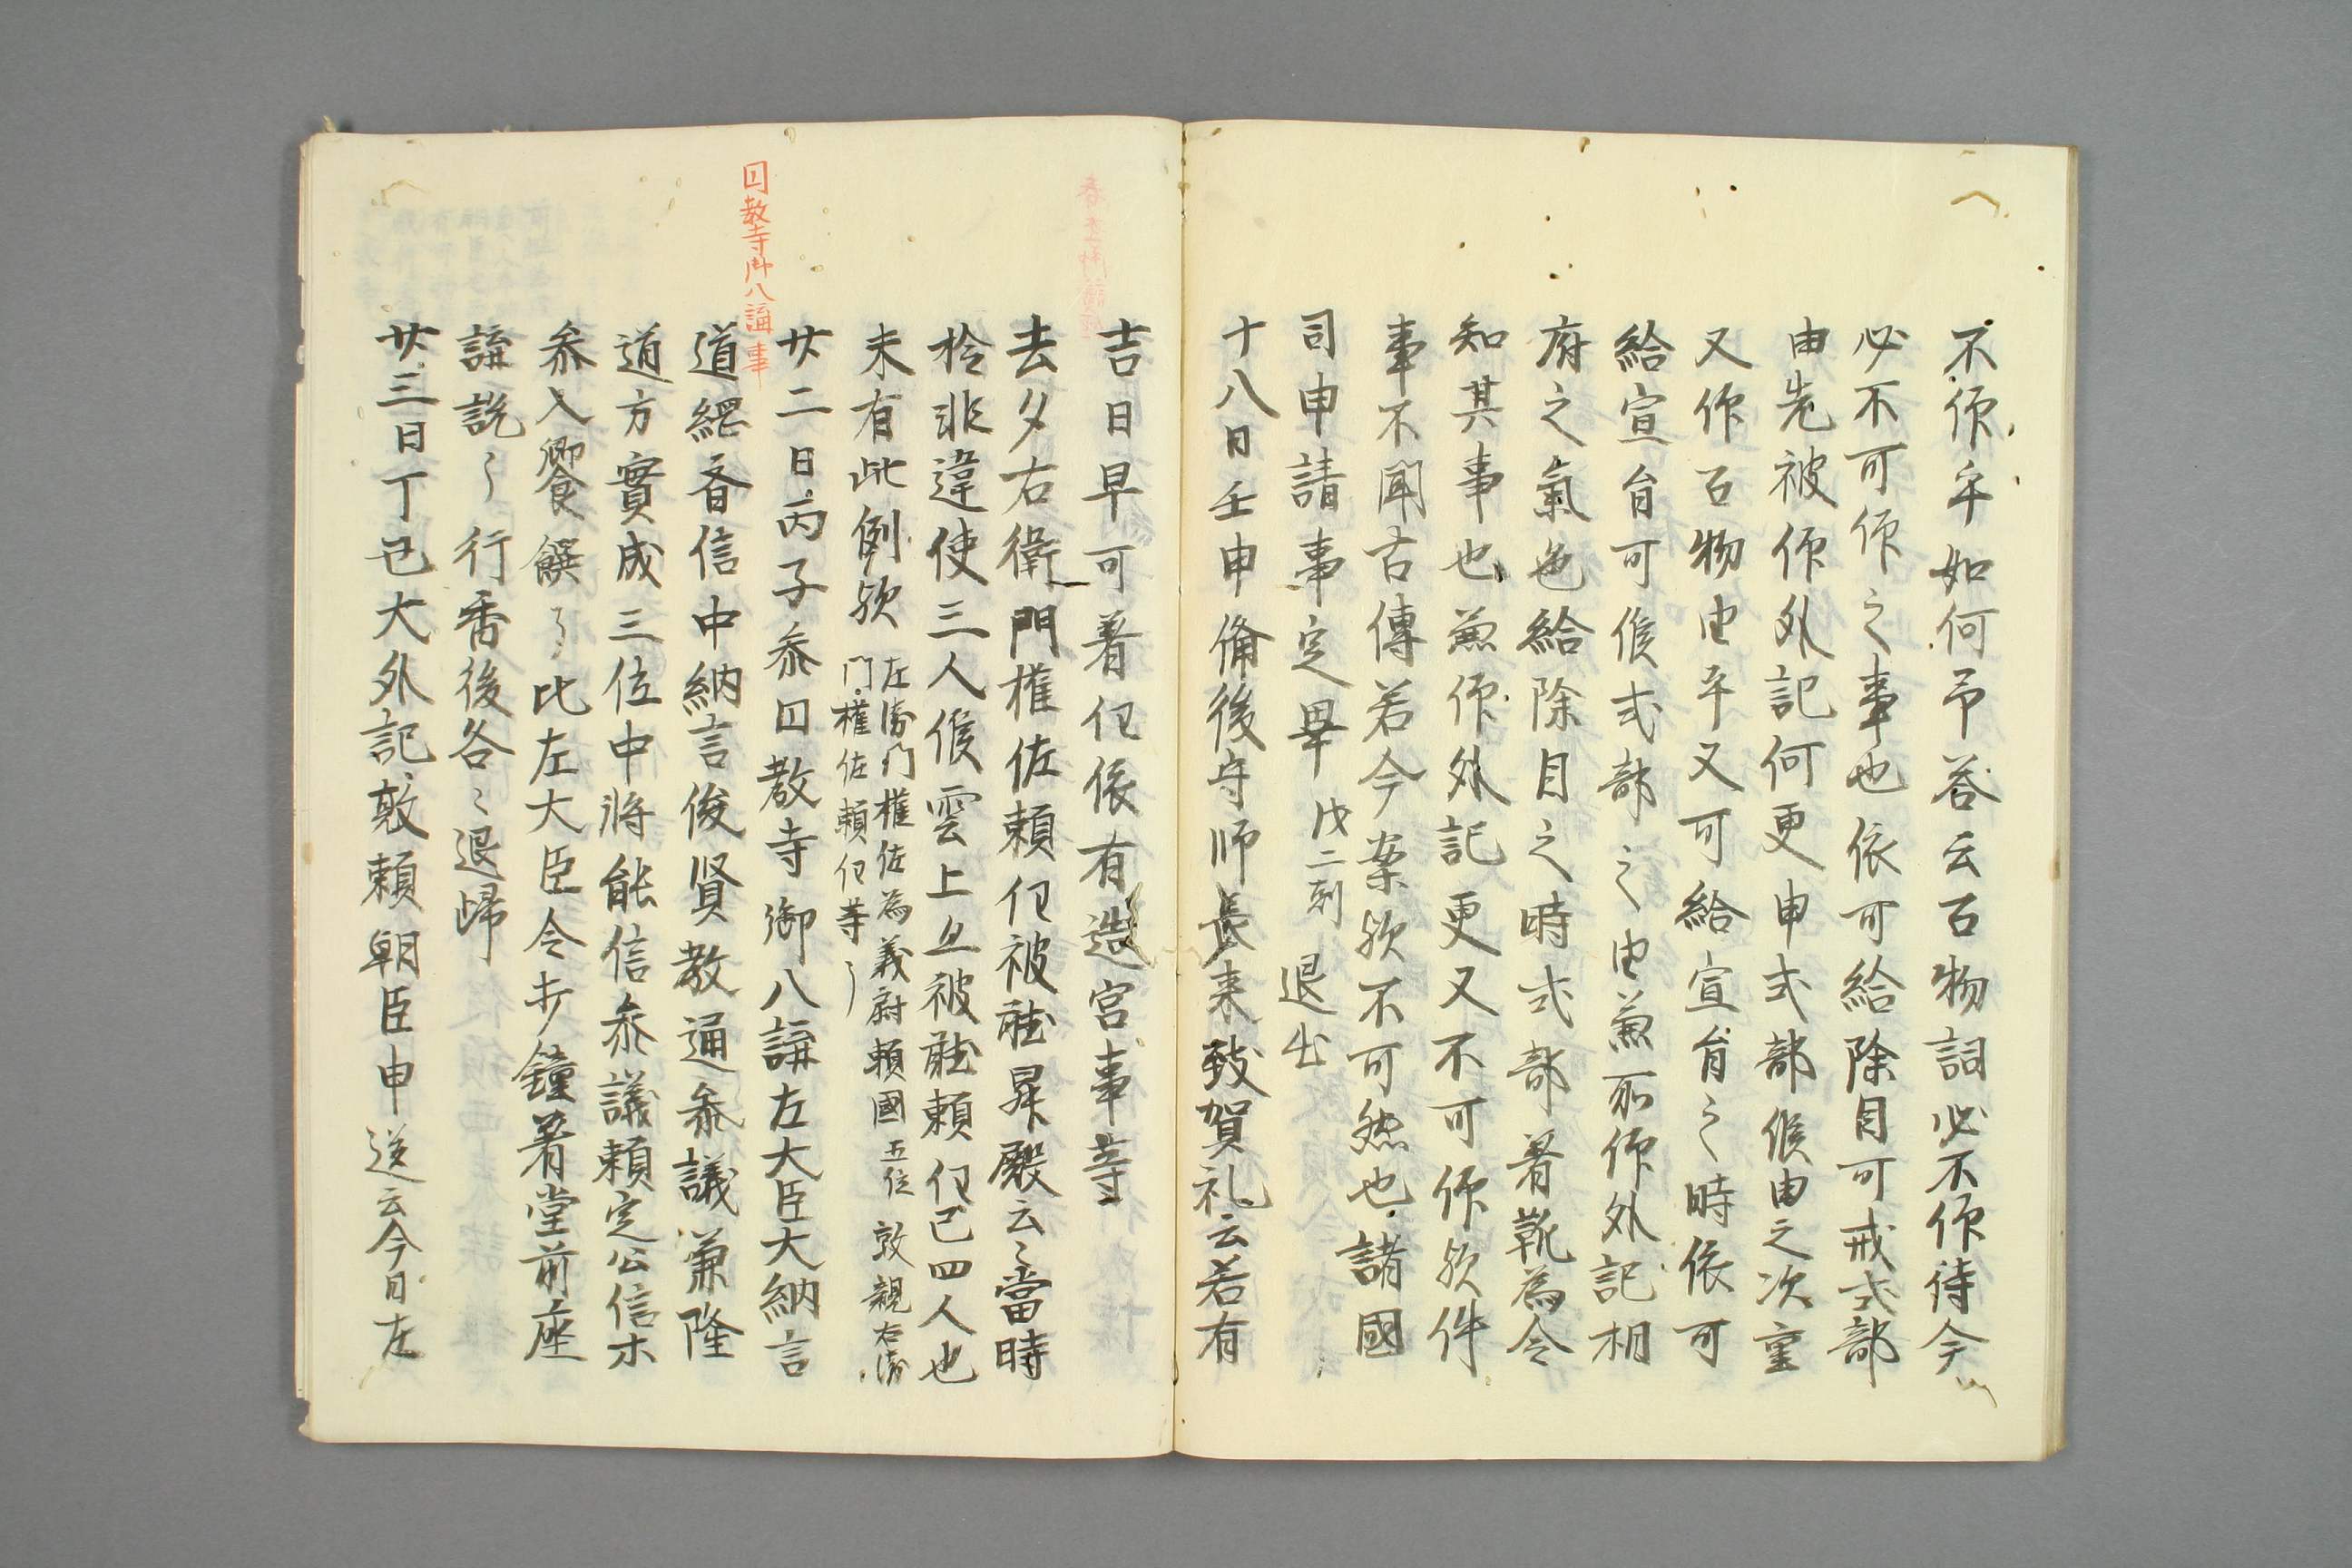 不仰乎如何予答云召物詞必不仰待今
必不可仰之事也依可給除目可戒式部
由先被仰外記何更申式部候由之次重
又仰召物由乎又可給宣旨之時依可
給宣旨可候式部之由兼所仰外記相
府之氣色給除目之時式部著靴為令
知其事也兼仰外記更又不可仰歟件
事不聞古傳若今案歟不可然也諸國
司申請事定畢戌二刻退出
十八日壬申備後守師長来致賀礼云若有
吉日早可著任依有造宮事等
去夕右衛門権佐頼任被聴昇殿云々當時
検非違使三人候雲上並被聴頼任已四人也
未有此例歟左衛門権佐為義尉頼國五位敦親右衛
門権佐頼任等
圓教寺御八講事
廿二日丙子参圓教寺御八講左大臣大納言
道綱斉信中納言俊賢教通参議兼隆
道方實成三位中将能信参議頼定公信朩
参入郷食饌了比左大臣令打鐘著堂前座
講説了行香後各々退歸
廿三日丁巳大外記敦頼朝臣申送云今日左